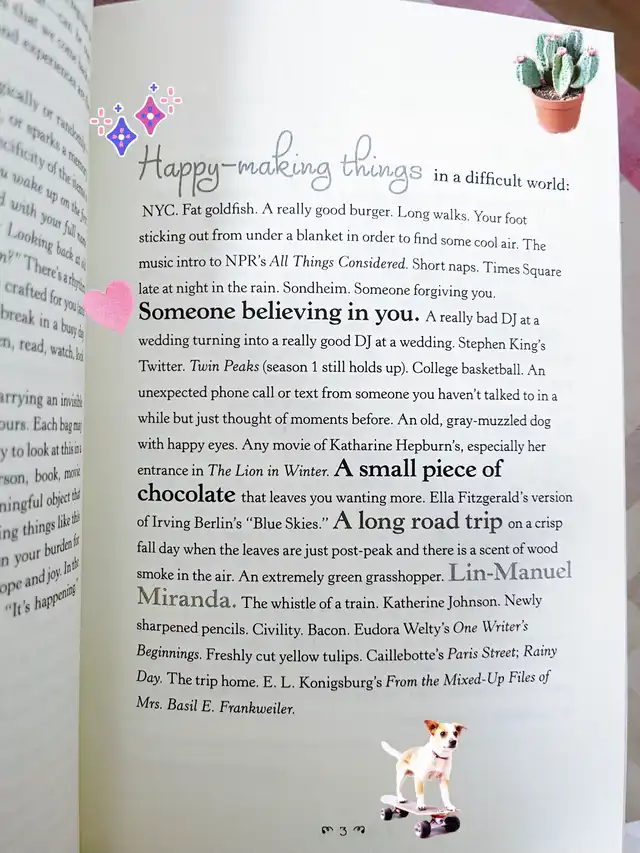 that we com
nd experiences an
gically or random
, or sparks a mem
cificity of the items
u wake up on the
d with your full
Looking back at
n?" There's a rhyth
crafted for you
break in a busy day
en, read, watch,
arrying an invisible
ours. Each bag may
y to look at this in a
rson, book, movie
ningful object that
ing things like this
n your burden for
ope and joy. In the
"It's happening"
Happy-making things in a difficult world:
NYC. Fat goldfish. A really good burger. Long walks. Your foot
sticking out from under a blanket in order to find some cool air. The
music intro to NPR's All Things Considered. Short naps. Times Square
late at night in the rain. Sondheim. Someone forgiving you.
Someone believing in you. A really bad DJ at a
wedding turning into a really good DJ at a wedding. Stephen King's
Twitter. Twin Peaks (season 1 still holds up). College basketball. An
unexpected phone call or text from someone you haven't talked to in a
while but just thought of moments before. An old, gray-muzzled dog
with happy eyes. Any movie of Katharine Hepburn's, especially her
entrance in The Lion in Winter. A small piece of
chocolate that leaves you wanting more. Ella Fitzgerald's version
of Irving Berlin's "Blue Skies." A long road trip on a crisp
fall day when the leaves are just post-peak and there is a scent of wood
smoke in the air. An extremely green grasshopper. Lin-Manuel
Miranda. The whistle of a train. Katherine Johnson. Newly
sharpened pencils. Civility. Bacon. Eudora Welty's One Writer's
Beginnings. Freshly cut yellow tulips. Caillebotte's Paris Street; Rainy
Day. The trip home. E. L. Konigsburg's From the Mixed-Up Files of
Mrs. Basil E. Frankweiler.
3